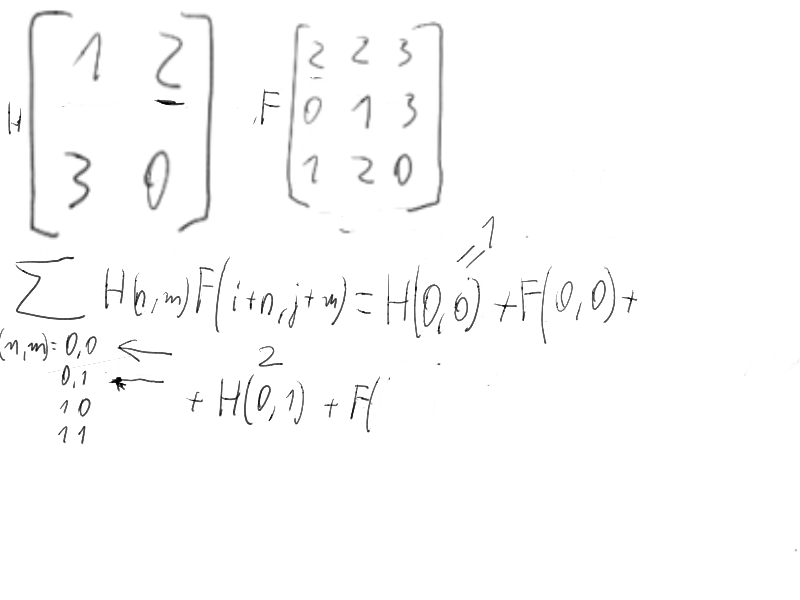 H [1 2
3 0]
F [2 2 3
0 1 3
1 2 0]
∑ H(n,m)F(i+n,j+m)=H(0,0)+F(0,0)+
=1
(n,m)=0,0 ←
0,1 ←
1 0
1 1
2
+ H(0,1) + F(